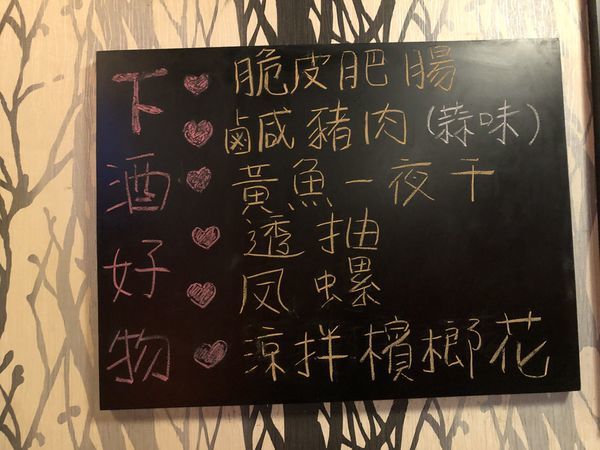 下酒好物
脆皮肥腸
鹹豬肉(蒜味)
黃魚一夜干
透抽
凤螺
涼拌檳榔花